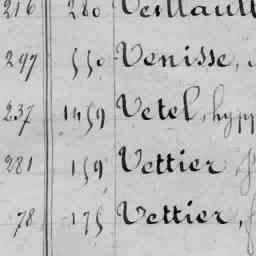 216 280 Veillault
297 550 Venisse,
237 1459 Vetel, hypp
281 159 Vettier,
78 175 Vettier,